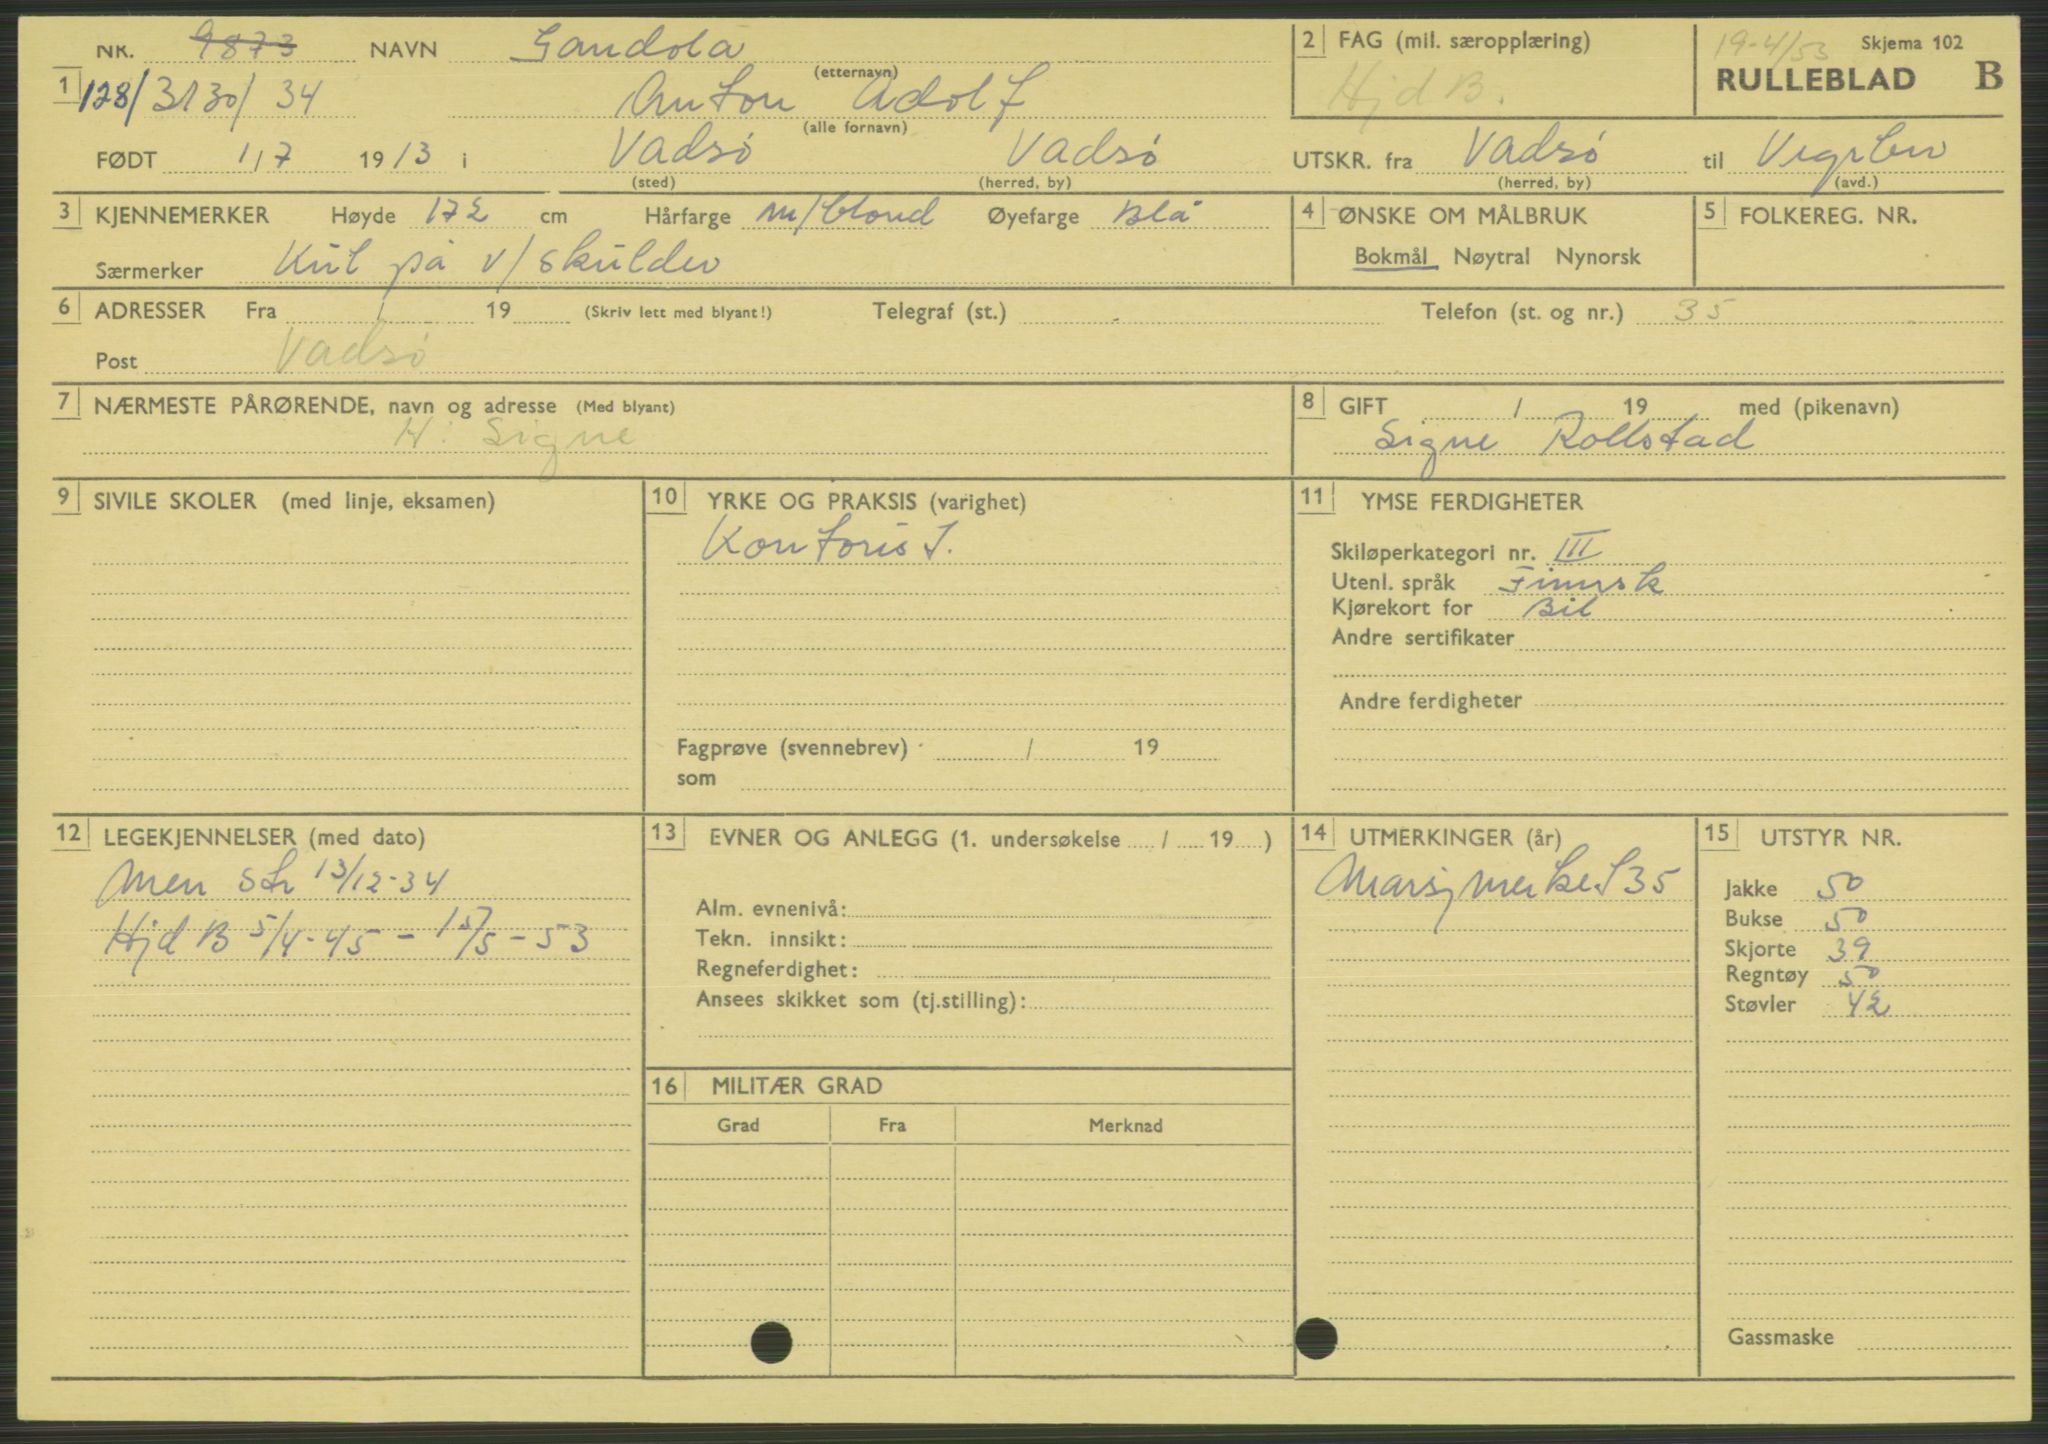 NR. 9873 NAVN Gandola
(etternavn)
1 128/3130/34 Anton Adolf
(alle fornavn)
FØDT 1/7 1913 i Vadsø Vadsø
(sted) (herred, by)
2 FAG (mil. særopplæring)
Hjd B.
19-4/53 Skjema 102
RULLEBLAD B
UTSKR. fra Vadsø til
(herred, by) (avd.)
3 KJENNEMERKER Høyde 172 cm Hårfarge m/blond Øyefarge Blå
Særmerker Kul på v/skulder
4 ØNSKE OM MÅLBRUK
Bokmål Nøytral Nynorsk
5 FOLKEREG. NR.
6 ADRESSER Fra / 19 (Skriv lett med blyant!) Telegraf (st.) Telefon (st. og nr.) 35
Post Vadsø
7 NÆRMESTE PÅRØRENDE, navn og adresse (Med blyant)
H: Signe
8 GIFT / 19 med (pikenavn)
Signe Rollstad
9 SIVILE SKOLER (med linje, eksamen)
10 YRKE OG PRAKSIS (varighet)
Kontorist.
Fagprøve (svennebrev) / 19
som
11 YMSE FERDIGHETER
Skiløperkategori nr. III
Utenl. språk Finnsk
Kjørekort for Bil
Andre sertifikater
Andre ferdigheter
12 LEGEKJENNELSER (med dato)
Men str 13/12-34
Hjd B 5/4-45 - 15/5-53
13 EVNER OG ANLEGG (1. undersøkelse / 19 )
Alm. evnenivå:
Tekn. innsikt:
Regneferdighet:
Ansees skikket som (tj.stilling):
14 UTMERKINGER (år)
Marsjmerket 35
15 UTSTYR NR.
Jakke 50
Bukse 50
Skjorte 39
Regntøy 50
Støvler 42
Gassmaske
16 MILITÆR GRAD
Grad Fra Merknad